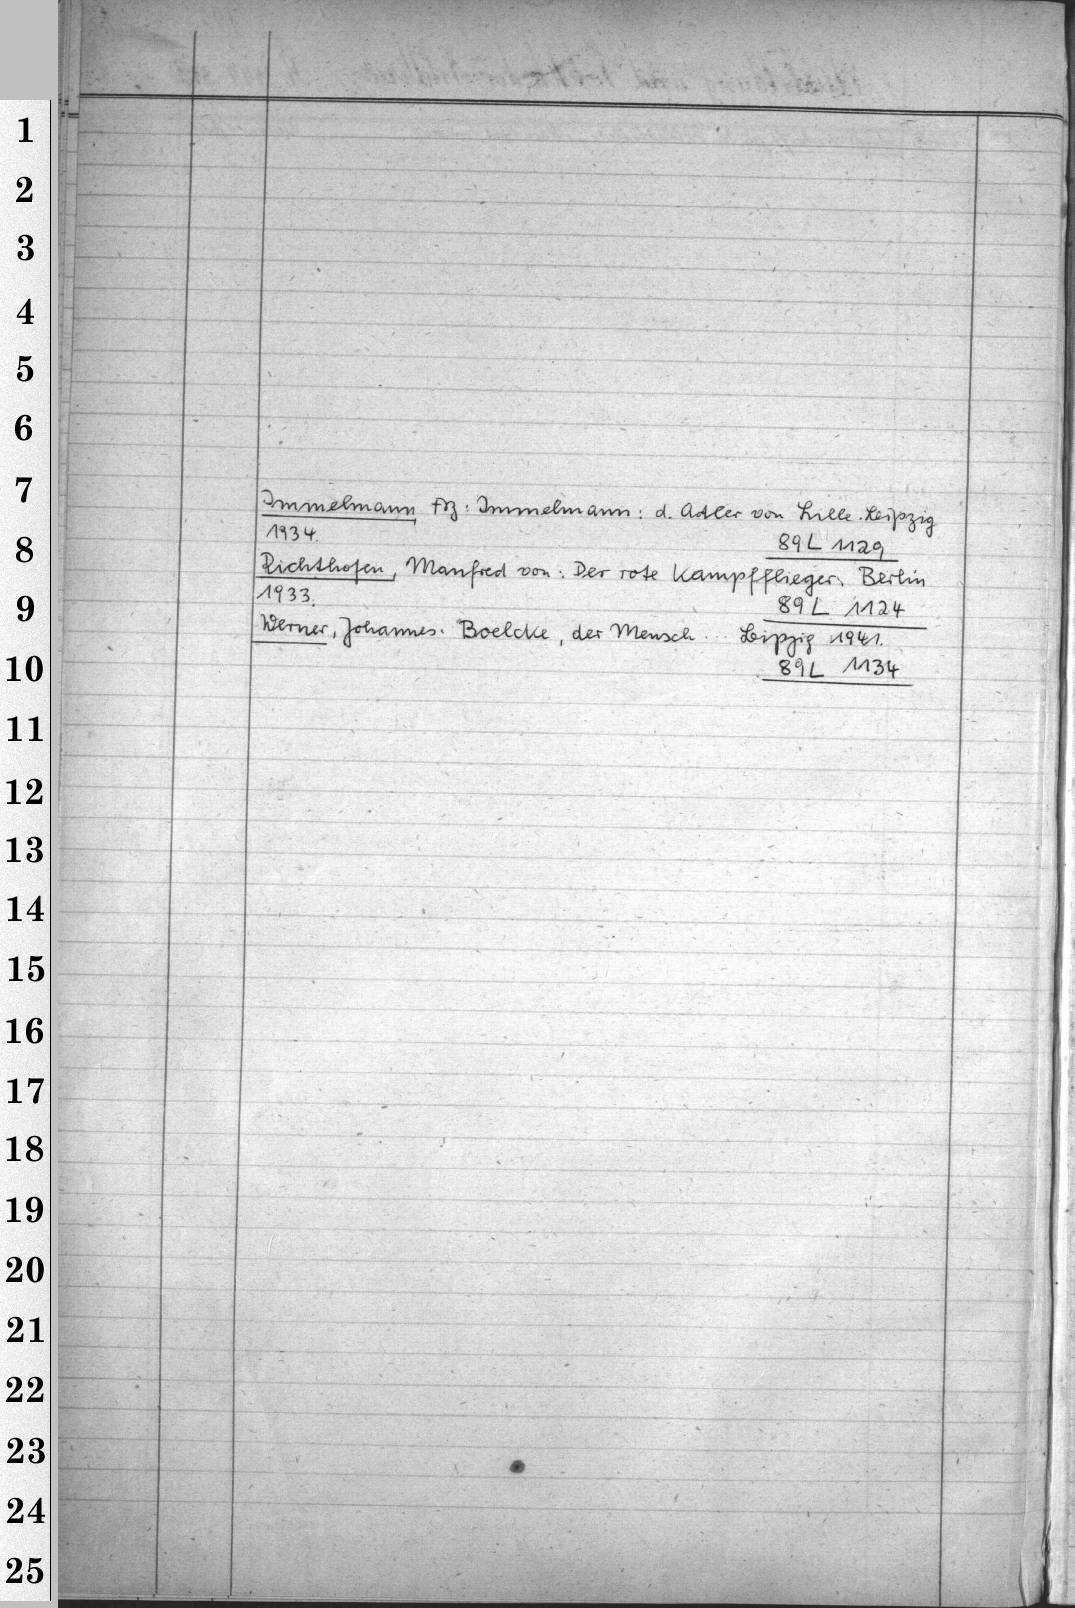 1
2
3
4
5
6
7
Immelmann, Frz: Immelmann: d. Adler von Lille. Leipzig
1934.
8
89 L 1129
Richthofen, Manfred von: Der rote Kampfflieger. Berlin
1933.
9
89 L 1124
Werner, Johannes. Boelcke, der Mensch ... Leipzig 1941.
10
89 L 1134
11
12
13
14
15
16
17
18
19
20
21
22
23
24
25